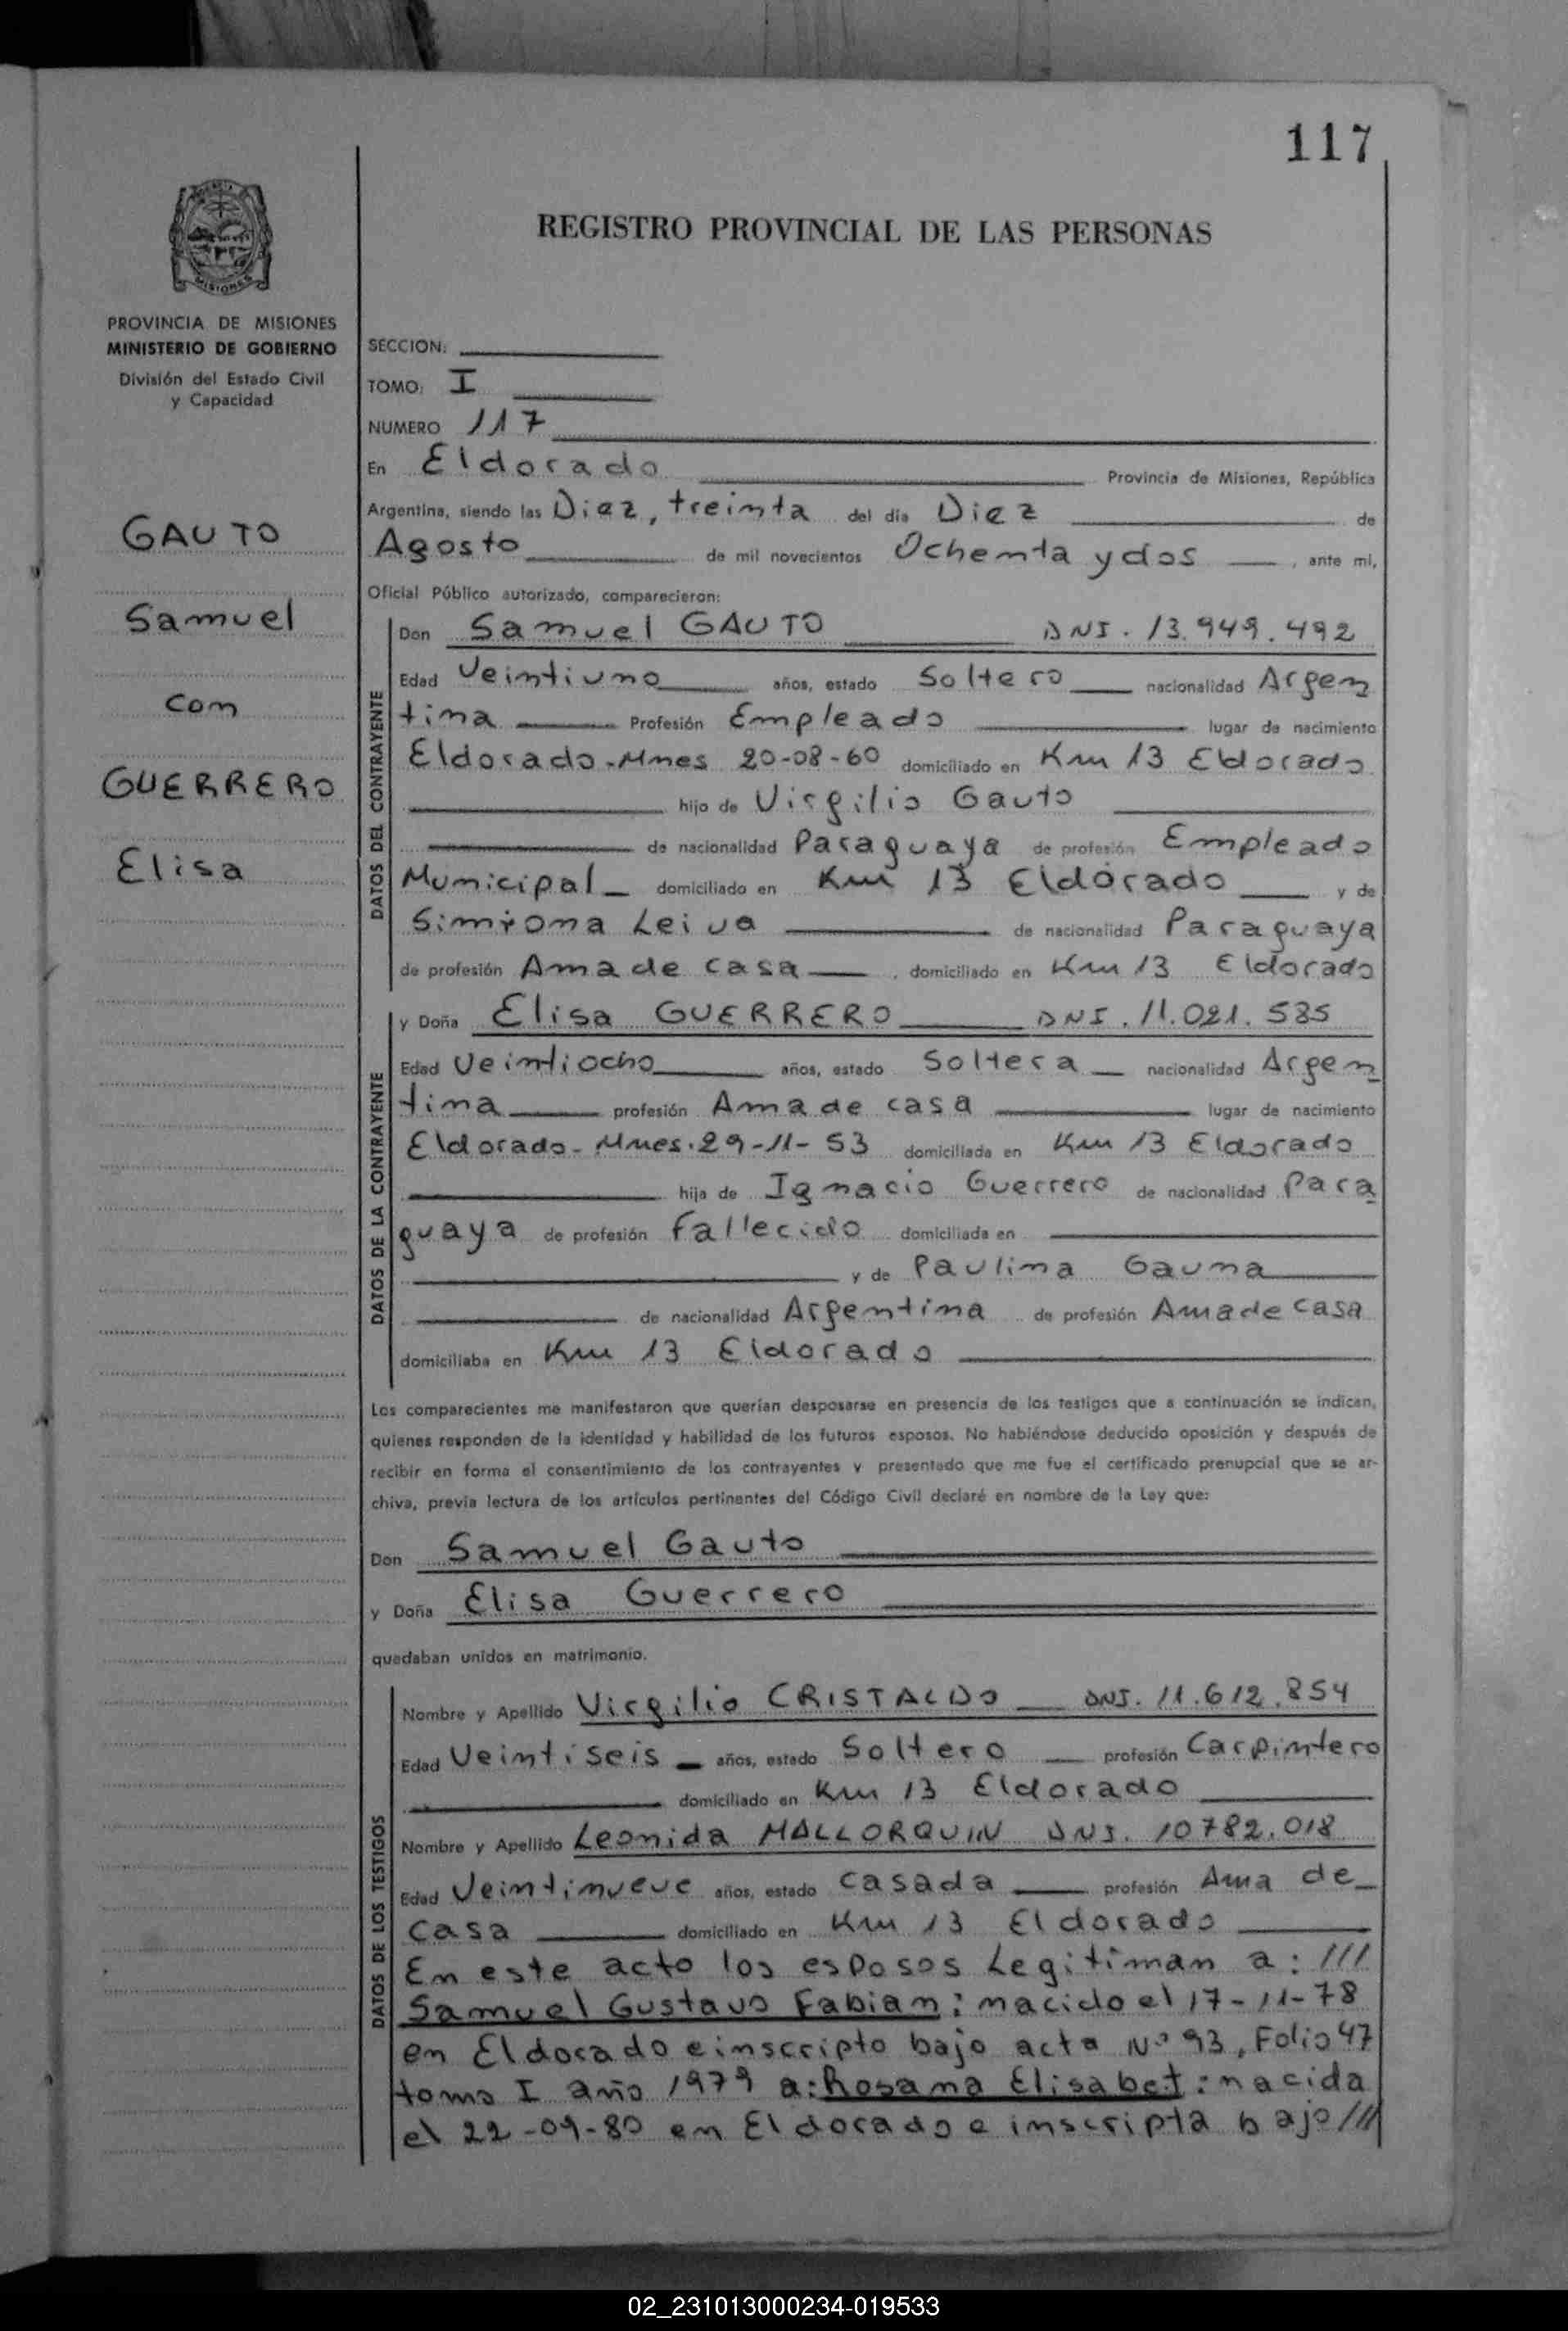 117
REGISTRO PROVINCIAL DE LAS PERSONAS
PROVINCIA DE MISIONES
MINISTERIO DE GOBIERNO
División del Estado Civil
y Capacidad
GAUTO
Samuel
con
GUERRERO
Elisa
SECCION:
TOMO: I
NUMERO 117
En Eldorado Provincia de Misiones, República
Argentina, siendo las Diez, treinta del día Diez de
Agosto de mil novecientos Ochenta y dos, ante mí,
Oficial Público autorizado, comparecieron:
DATOS DEL CONTRAYENTE
Don Samuel GAUTO DNI. 13.949.492
Edad Veintiuno años, estado Soltero nacionalidad Argen
tina Profesión Empleado lugar de nacimiento
Eldorado-Mnes 20-08-60 domiciliado en Km 13 Eldorado
hijo de Virgilio Gauto
de nacionalidad Paraguaya de profesión Empleado
Municipal domiciliado en Km 13 Eldorado y de
Leiva de nacionalidad Paraguaya
de profesión Ama de casa, domiciliado en Km 13 Eldorado
DATOS DE LA CONTRAYENTE
y Doña Elisa GUERRERO DNI. 11.021.585
Edad Veintiocho años, estado Soltera nacionalidad Argen
tina profesión Ama de casa lugar de nacimiento
Eldorado-Mnes. 29-11-53 domiciliada en Km 13 Eldorado
hija de Ignacio Guerrero de nacionalidad Para
guaya de profesión fallecido domiciliada en
y de Paulina Gauna
de nacionalidad Argentina de profesión Ama de casa
domiciliaba en Km 13 Eldorado
Los comparecientes me manifestaron que querían desposarse en presencia de los testigos que a continuación se indican,
quienes responden de la identidad y habilidad de los futuros esposos. No habiéndose deducido oposición y después de
recibir en forma el consentimiento de los contrayentes y presentado que me fue el certificado prenupcial que se ar-
chiva, previa lectura de los artículos pertinentes del Código Civil declaré en nombre de la Ley que:
Don Samuel Gauto
y Doña Elisa Guerrero
quedaban unidos en matrimonio.
DATOS DE LOS TESTIGOS
Nombre y Apellido Virgilio CRISTALDO DNI. 11.612.854
Edad Veintiseis años, estado Soltero profesión Carpintero
domiciliado en Km 13 Eldorado
Nombre y Apellido Leonida MALLORQUIN DNI. 10782.018
Edad Veintinueve años, estado casada profesión Ama de
casa domiciliado en Km 13 Eldorado
En este acto los esposos Legitiman a: ///
Samuel Gustavo Fabian: nacido el 17-11-78
en Eldorado e inscripto bajo acta Nº 93, Folio 47
tomo I año 1979 a: Rosana Elisabet: nacida
el 22-09-80 en Eldorado e inscripta bajo ///
02_231013000234-019533